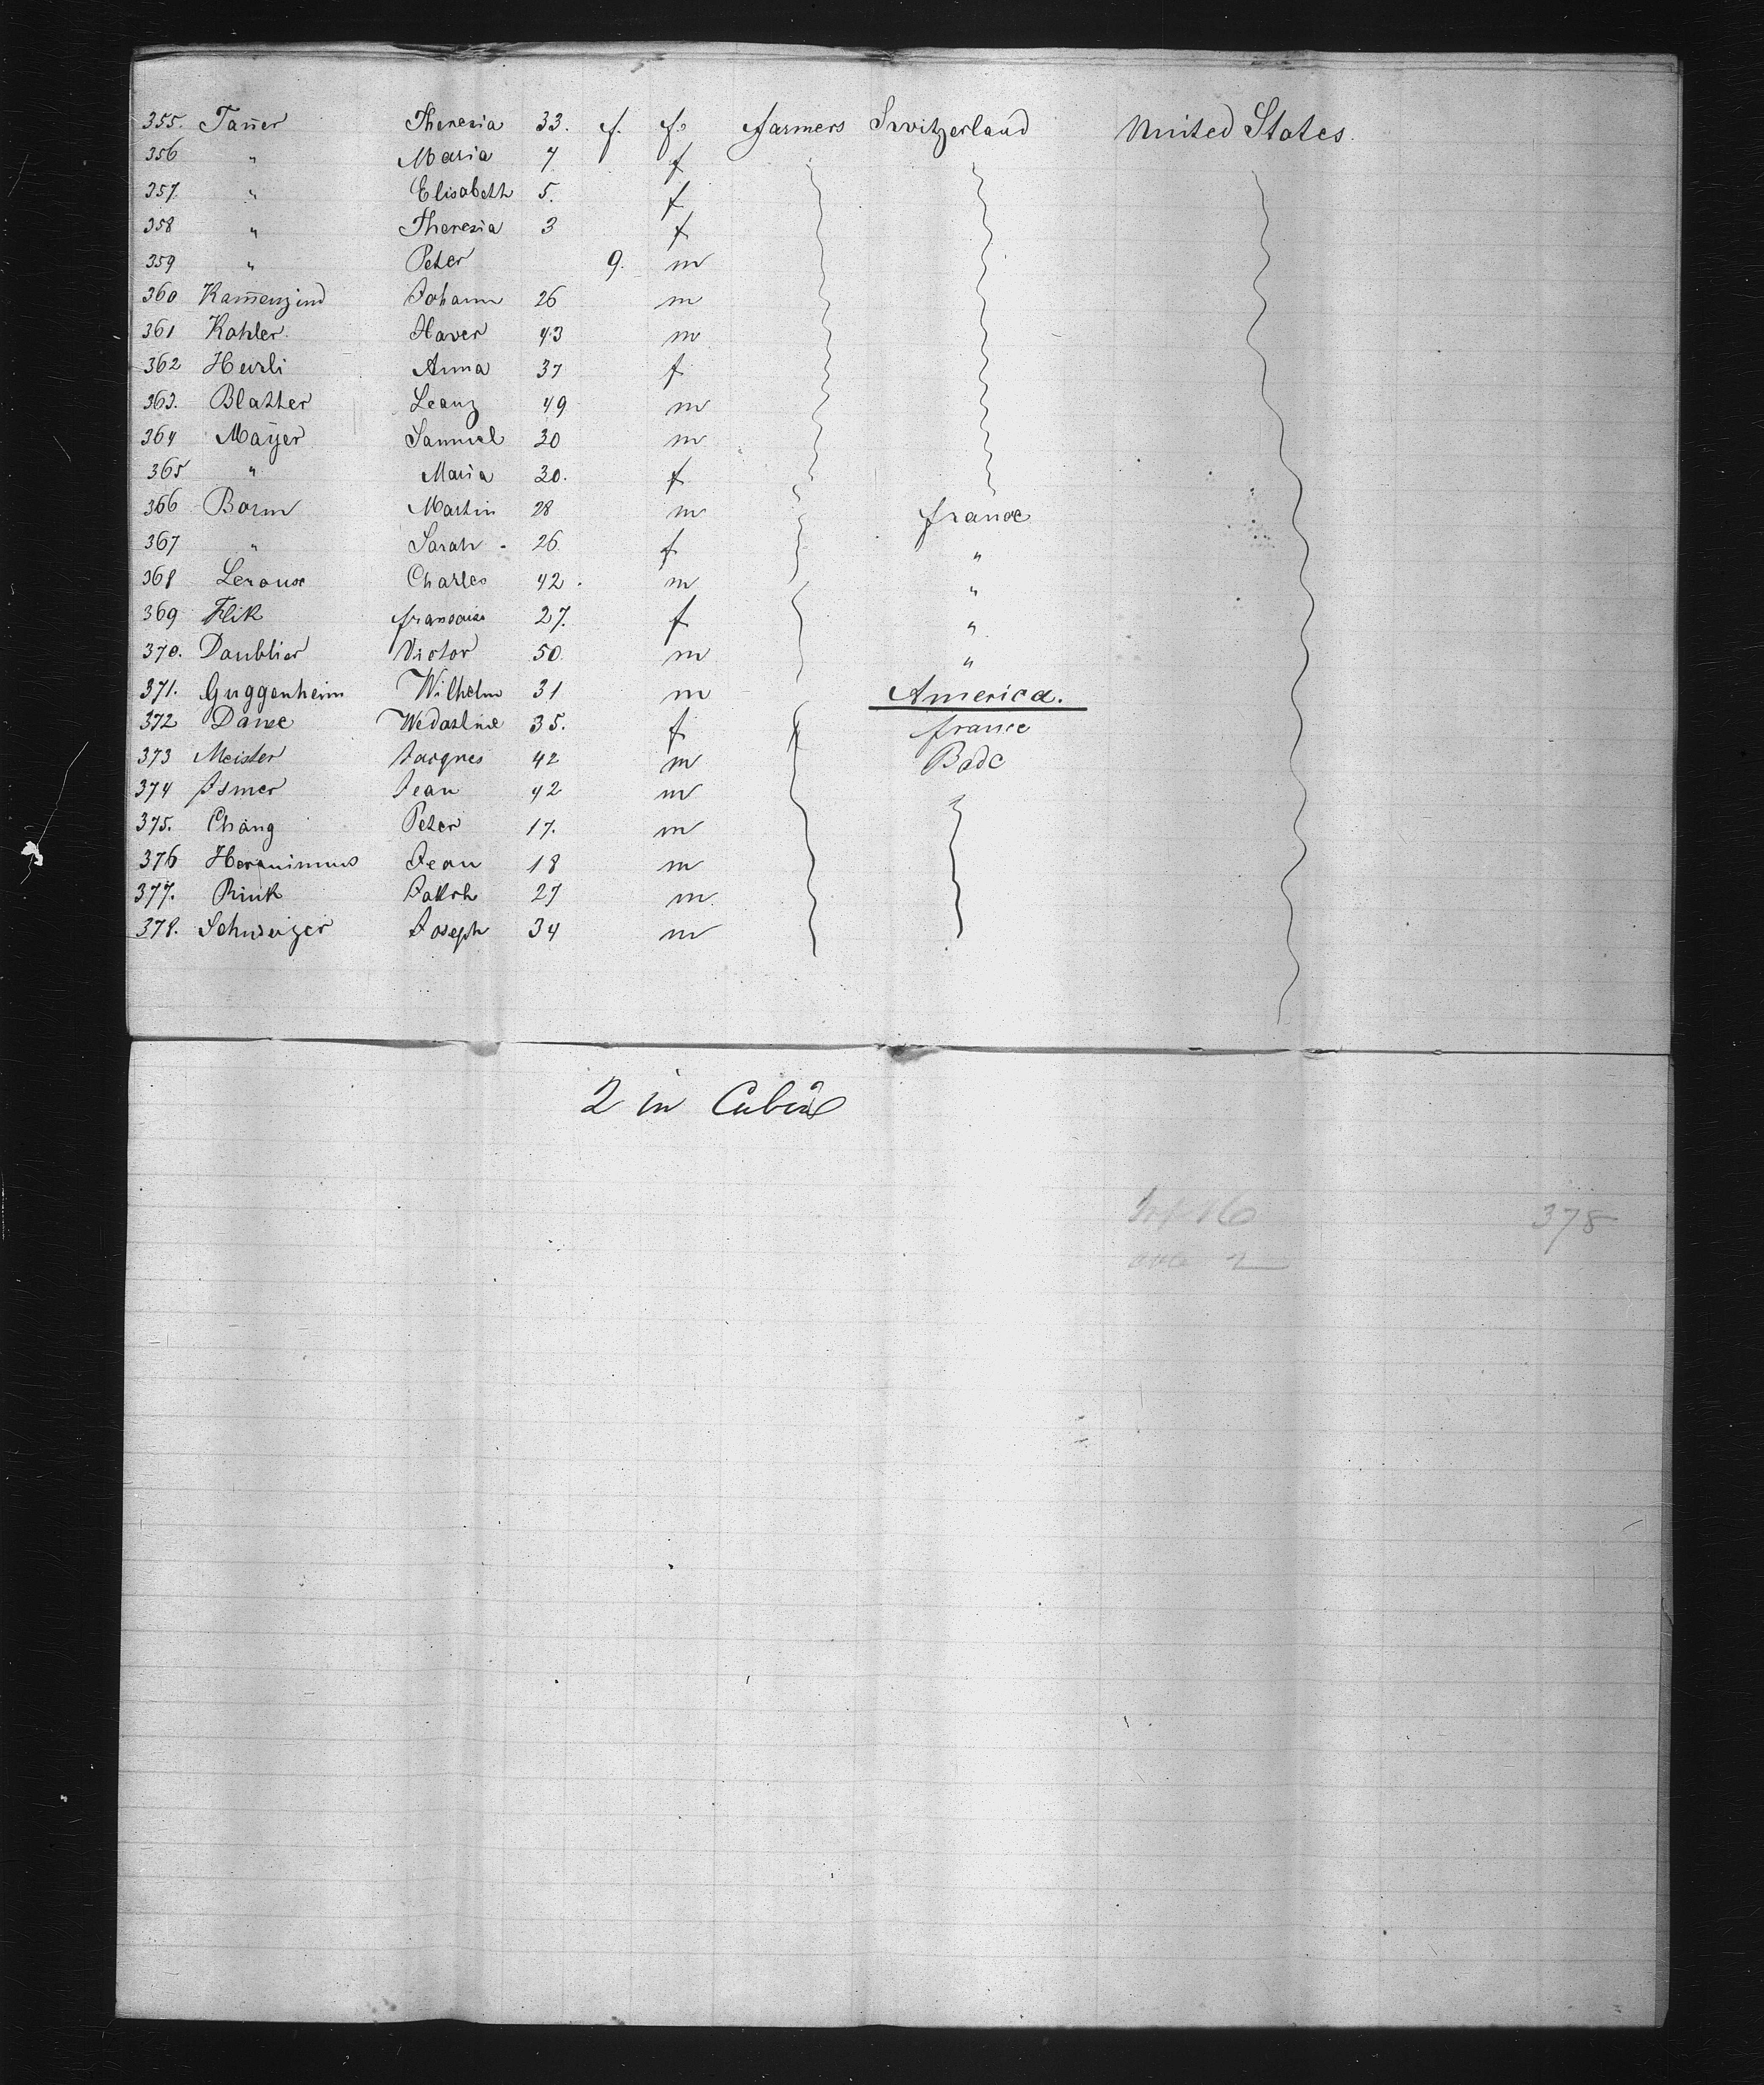 355. Tan̄er Theresia 33. f. f. farmers Switzerland United States.
356 " Maria 7 f
357. " Elisabeth 5. f
358 " Theresia 3 f
359 " Peter 9. m
360 Kam̄enzind Johann 26 m
361 Kohler Xaver 43 m
362 Heirli Anna 37 f
363. Blatter Leanz 49 m
364 Mayer Samuel 30 m
365 " Maria 30. f
366 Borm Martin 28 m france
367 " Sarah 26 f "
368 Leroux Charles 42 m "
369 Flik francoise 27. f "
370. Daublier Victor 50 m "
371. Guggenheim Wilhelm 31 m America.
372 35. f france
373 Meister Jacques 42 m Bade
374 Jean 42 m
375. Chang Peter 17. m
376 Heronimus Jean 18 m
377. Rink Jakob 27 m
378. Schweizer Joseph 34 m
2 in Cabin
378